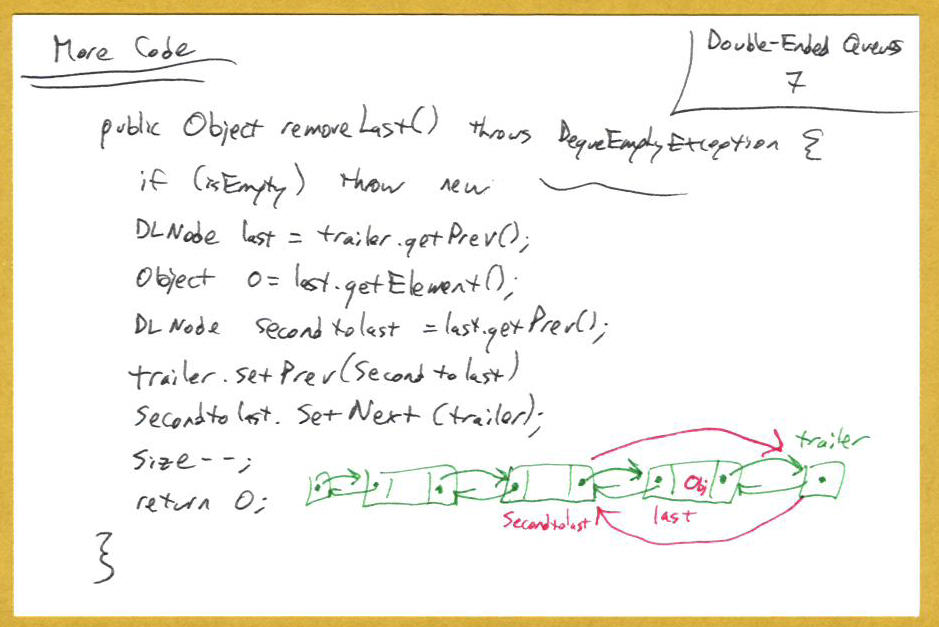 More Code
Double-Ended Queues
7
public Object removeLast() throws DequeEmptyException {
if (isEmpty) throw new
DLNode last = trailer.getPrev();
Object o = last.getElement();
DLNode secondtolast = last.getPrev();
trailer.setPrev(secondtolast)
secondtolast.setNext(trailer);
size--;
return o;
}
trailer
Obj
secondtolast
last